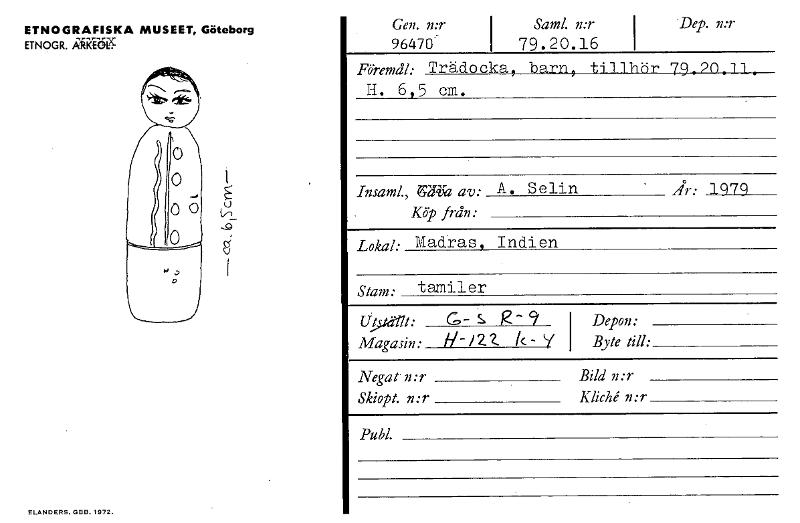 ETNOGRAFISKA MUSEET, Göteborg
ETNOGR. ARKEOL.
ca. 6,5cm
ELANDERS. GBG. 1972.
Gen. n:r Saml. n:r Dep. n:r
96470 79.20.16
Föremål: Trädocka, barn, tillhör 79.20.11.
H. 6,5 cm.
Insaml., Gåva av: A. Selin År: 1979
Köp från:
Lokal: Madras, Indien
Stam: tamiler
Utställt: G-S R-9 Depon:
Magasin: H-122 k-4 Byte till:
Negat n:r Bild n:r
Skiopt. n:r Kliché n:r
Publ.